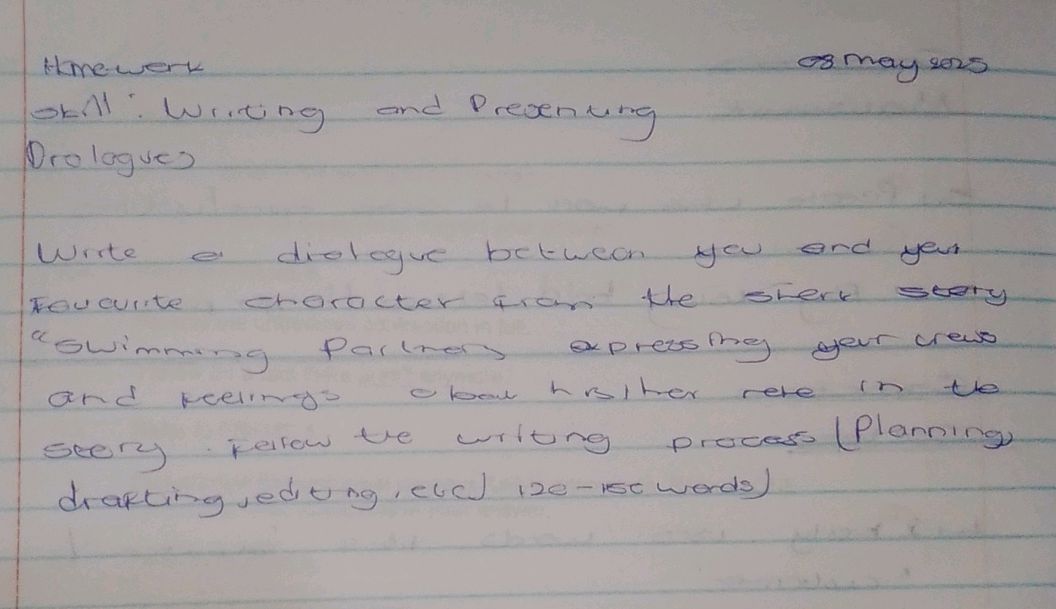 Homework 08 May 2025
Skill: Writing and Presenting
Dialogues
Write a dialogue between you and your
Favourite character from the short story
"Swimming Partners expressing your views
and feelings about his/her role in the
story. Follow the writing process (Planning,
drafting, editing, etc) 120-150 words)